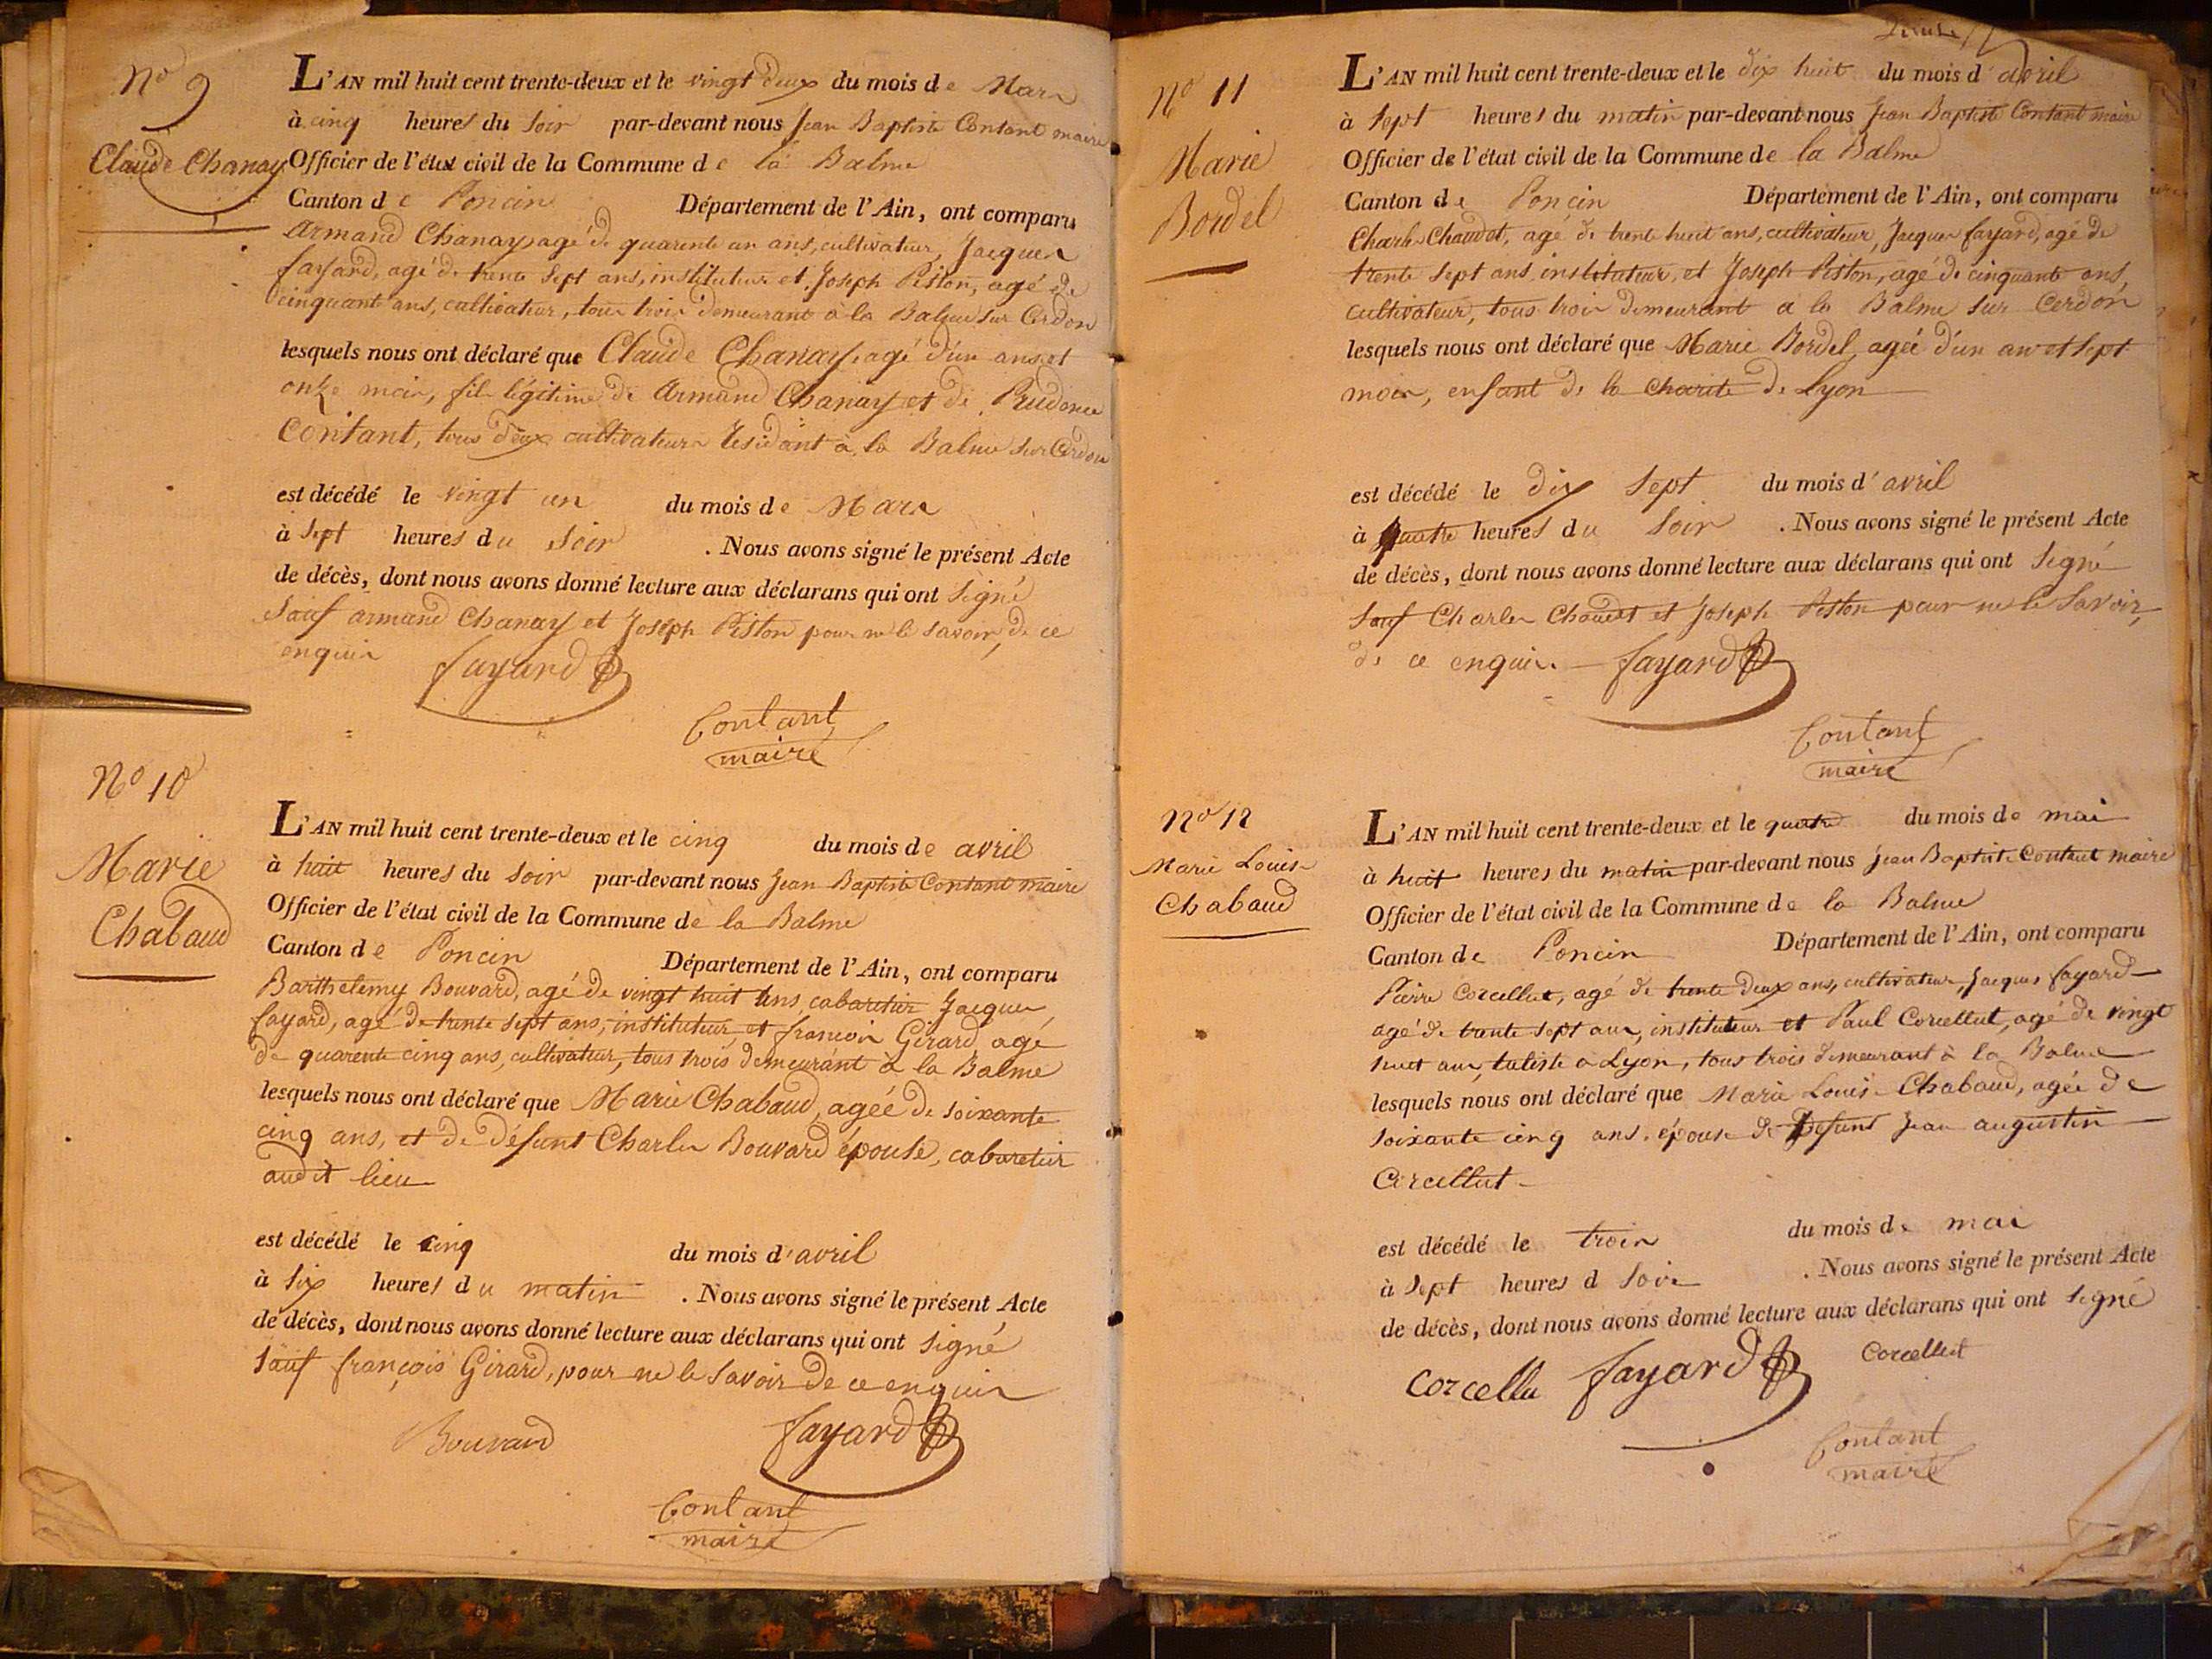 No 9
Claude Chanay
L'AN mil huit cent trente-deux et le vingt deux du mois de Mars
à cinq heures du soir par-devant nous Jean Baptiste Contant maire
Officier de l'état civil de la Commune de la Balme
Canton de Poncin Département de l'Ain, ont comparu
Armand Chanay, agé de quarente un ans, cultivateur, Jacques
fayard, agé de trente sept ans, instituteur et Joseph Piston, agé de
cinquante ans, cultivateur, tous trois demeurant à la Balme sur Cerdon
lesquels nous ont déclaré que Claude Chanay, agé d'un ans et
onze mois, fils légitime de Armand Chanay et de Prudence
Contant, tous deux cultivateurs residant à la Balme sur Cerdon
est décédé le vingt un du mois de Mars
à sept heures du soir . Nous avons signé le présent Acte
de décès, dont nous avons donné lecture aux déclarans qui ont signé
sauf armand Chanay et Joseph Piston pour ne le savoir, de ce
enquis fayard
Contant
maire
No 10
Marie
Chabaud
L'AN mil huit cent trente-deux et le cinq du mois de avril
à huit heures du soir par-devant nous Jean Baptiste Contant maire
Officier de l'état civil de la Commune de la Balme
Canton de Poncin Département de l'Ain, ont comparu
Barthelemy Bouvard, agé de vingt huit ans, cabaretier Jacques
fayard, agé de trente sept ans, instituteur, et francois Girard agé
de quarente cinq ans, cultivateur, tous trois demeurant à la Balme
lesquels nous ont déclaré que Marie Chabaud, agée de soixante
cinq ans, et de défunt Charles Bouvard épouse, cabaretier
audit lieu
est décédé le cinq du mois d'avril
à six heures du matin . Nous avons signé le présent Acte
de décès, dont nous avons donné lecture aux déclarans qui ont signé
sauf françois Girard, pour ne le savoir de ce enquis
Bouvard fayard
Contant
maire
No 11
Marie
Bordel
L'AN mil huit cent trente-deux et le dix huit du mois d'avril
à sept heures du matin par-devant nous Jean Baptiste Contant maire
Officier de l'état civil de la Commune de la Balme
Canton de Poncin Département de l'Ain, ont comparu
Charles Chaudet, agé de trente huit ans, cultivateur, Jacques fayard, agé de
trente sept ans instituteur, et Joseph Piston, agé de cinquante ans,
cultivateur, tous trois demeurant à la Balme sur Cerdon
lesquels nous ont déclaré que Marie Bordel, agée d'un an et sept
mois, enfant de la charité de Lyon
est décédé le dix sept du mois d'avril
à quatre heures du soir . Nous avons signé le présent Acte
de décès, dont nous avons donné lecture aux déclarans qui ont signé
sauf Charles Chaudet et Joseph Piston pour ne le savoir,
de ce enquis. fayard
Contant
maire
No 12
Marie Louise
Chabaud
L'AN mil huit cent trente-deux et le quatre du mois de mai
à huit heures du matin par-devant nous Jean Baptiste Contant maire
Officier de l'état civil de la Commune de la Balme
Canton de Poncin Département de l'Ain, ont comparu
Pierre Corcellut, agé de trente deux ans, cultivateur, Jacques fayard
agé de trente sept ans, instituteur et Paul Corcellut, agé de vingt
huit ans, à Lyon, tous trois demeurant à la Balme
lesquels nous ont déclaré que Marie Louise Chabaud, agée de
soixante cinq ans, épouse de Defunt Jean augustin
Corcellut
est décédé le trois du mois de mai
à sept heures d soir . Nous avons signé le présent Acte
de décès, dont nous avons donné lecture aux déclarans qui ont signé
Corcellu fayard Corcellut
Contant
maire